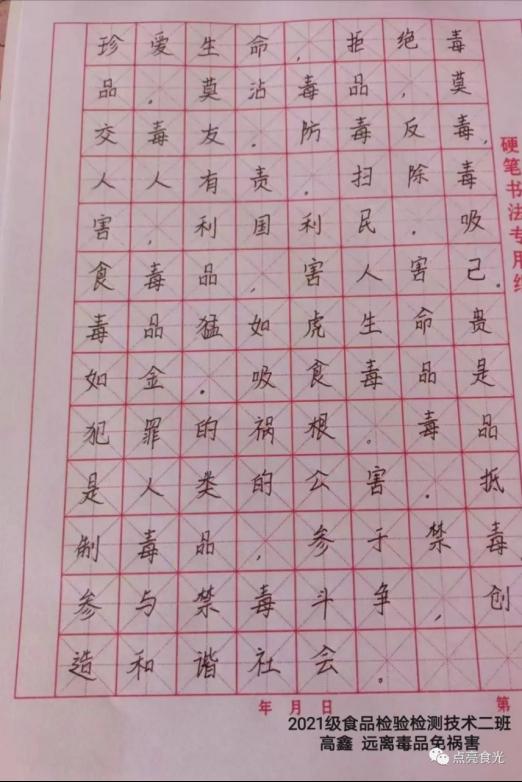 珍爱生命，拒绝毒
品，莫沾毒品，莫
交毒友。防毒反毒，
人人有责。扫除毒
害，利国利民。吸
食毒品，害人害己。
毒品猛如虎生命贵
如金。吸食毒品是
犯罪的祸根。毒品
是人类的公害。抵
制毒品，参于禁毒
参与禁毒斗争，创
造和谐社会。
硬笔书法专用纸
年 月 日 第
2021级食品检验检测技术二班
高鑫 远离毒品免祸害
点亮食光